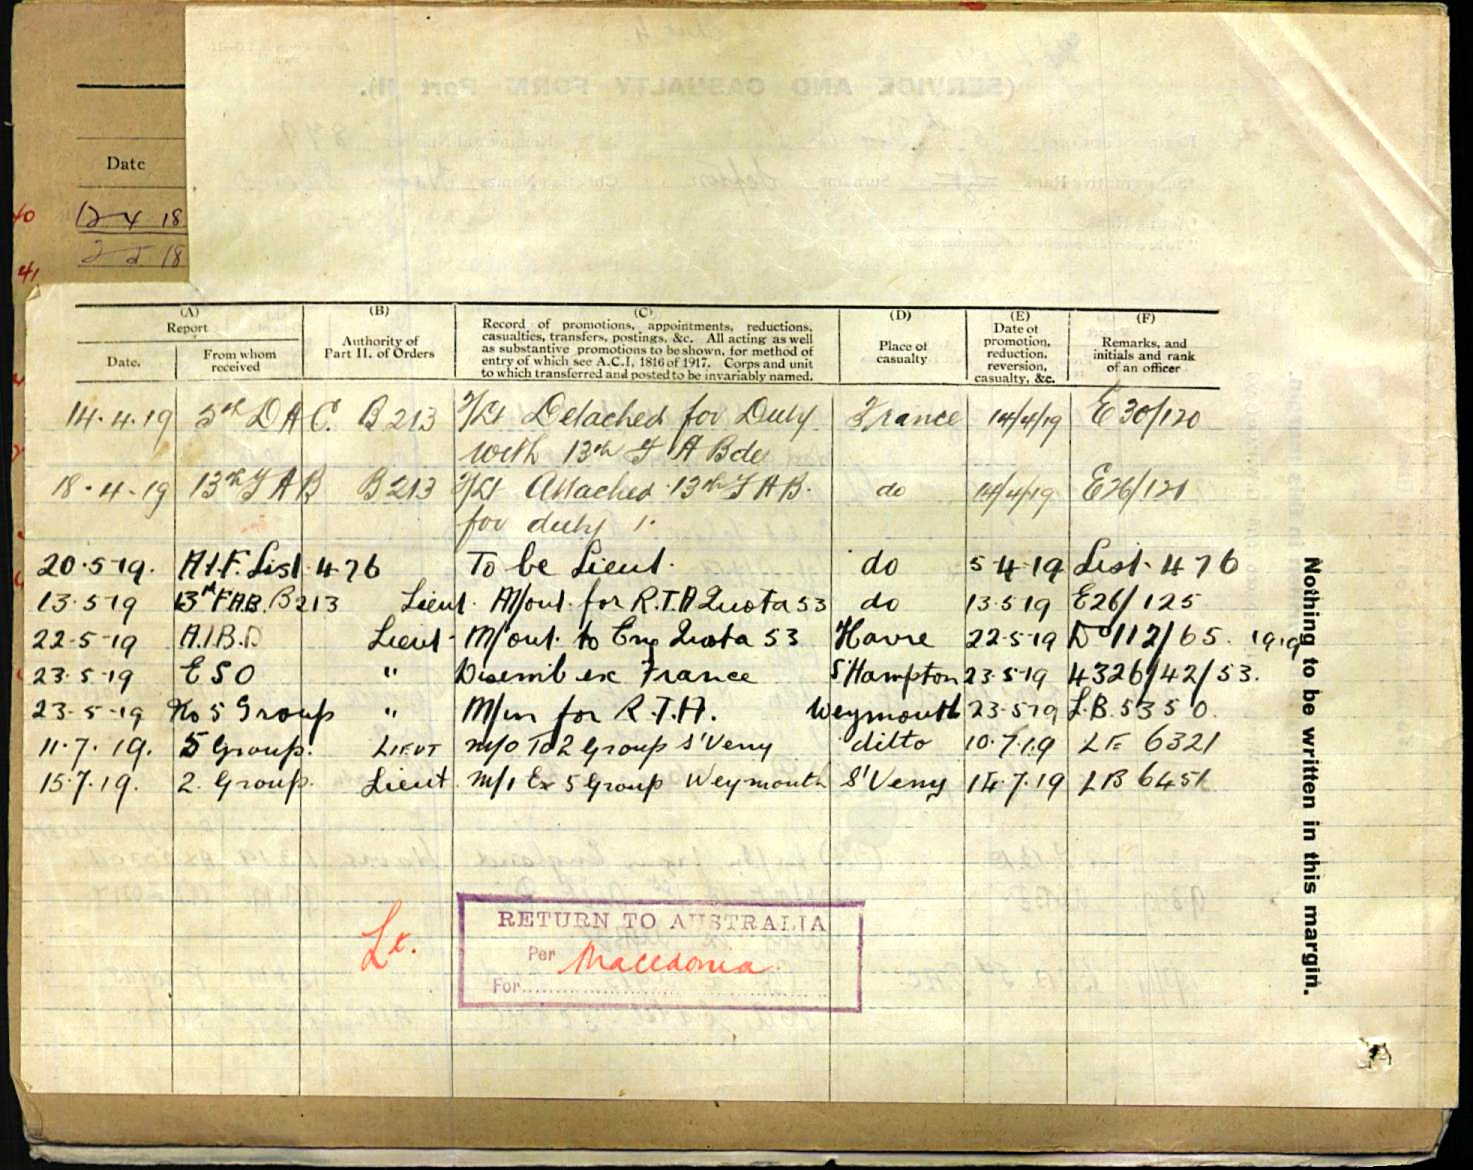 Date
40
12 4 18
2 5 18
41
(A)
Report
Date.
From whom
received
(B)
Authority of
Part II. of Orders
(C)
Record of promotions, appointments, reductions,
casualties, transfers, postings, &c. All acting as well
as substantive promotions to be shown, for method of
entry of which see A.C.I. 1816 of 1917. Corps and unit
to which transferred and posted to be invariably named.
(D)
Place of
casualty
(E)
Date of
promotion,
reduction,
reversion,
casualty, &c.
(F)
Remarks, and
initials and rank
of an officer
14.4.19 5th D A C. B 213 2/Lt Detached for Duty France 14/4/19 E 30/120
with 13th F A Bde
18.4.19 13th F A B B 213 2/Lt Attached 13th F A B. do 14/4/19 E26/121
for duty
20.5.19. A.I.F. List 476 To be Lieut. do 5.4.19 List. 476
13.5.19 13th F.A.B. B213 Lieut. M/out. for R.T.A Quota 53 do 13.5.19 E26/125
22.5.19 A.I.B.D Lieut. M/out. to Eng Quota 53 Havre 22.5.19 Do 112/65. 1919
23.5.19 E S O " Disemb ex France S'Hampton 23.5.19 4326/42/53.
23.5.19 No 5 Group " M/in for R.T.A. Weymouth 23.5.19 L.B. 5350.
11.7.19. 5 Group. LIEUT m/o To 2 Group S'Veny ditto 10.7.19 LB 6321
15.7.19. 2. Group. Lieut M/I Ex 5 Group Weymouth S'Veny 14.7.19 LB 6451
Lt.
RETURN TO AUSTRALIA
Per Macedonia
For
Nothing to be written in this margin.